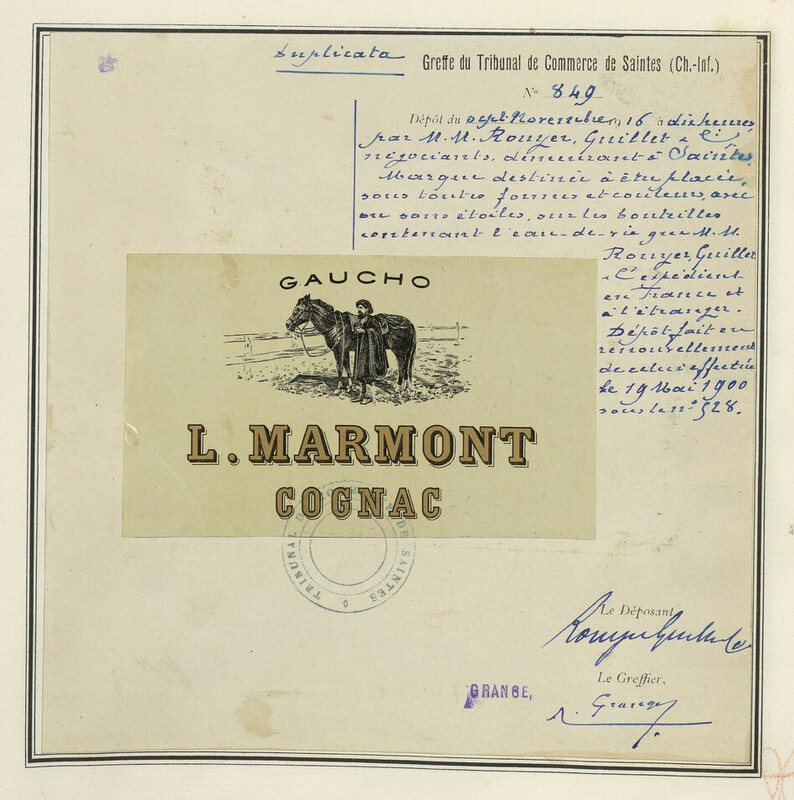 Duplicata
Greffe du Tribunal de Commerce de Saintes (Ch.-Inf.)
N° 849
Dépôt du sept Novembre 1916 à dix heures
par M.M. Rouyer, Guillet & Cie
négociants, demeurant à Saintes.
Marque destinée à être placée,
sous toutes formes et couleurs, avec
ou sans étoiles, sur les bouteilles
contenant l'eau-de-vie que M.M.
Rouyer, Guillet
& Cie expédient
en France et
à l'étranger.
Dépôt fait en
renouvellement
de celui effectué
le 19 Mai 1900
sous le n° 528.
GAUCHO
L. MARMONT
COGNAC
TRIBUNAL DE COMMERCE DE SAINTES
Le Déposant,
Rouyer Guillet & Cie
Le Greffier,
GRANGE,
Grange